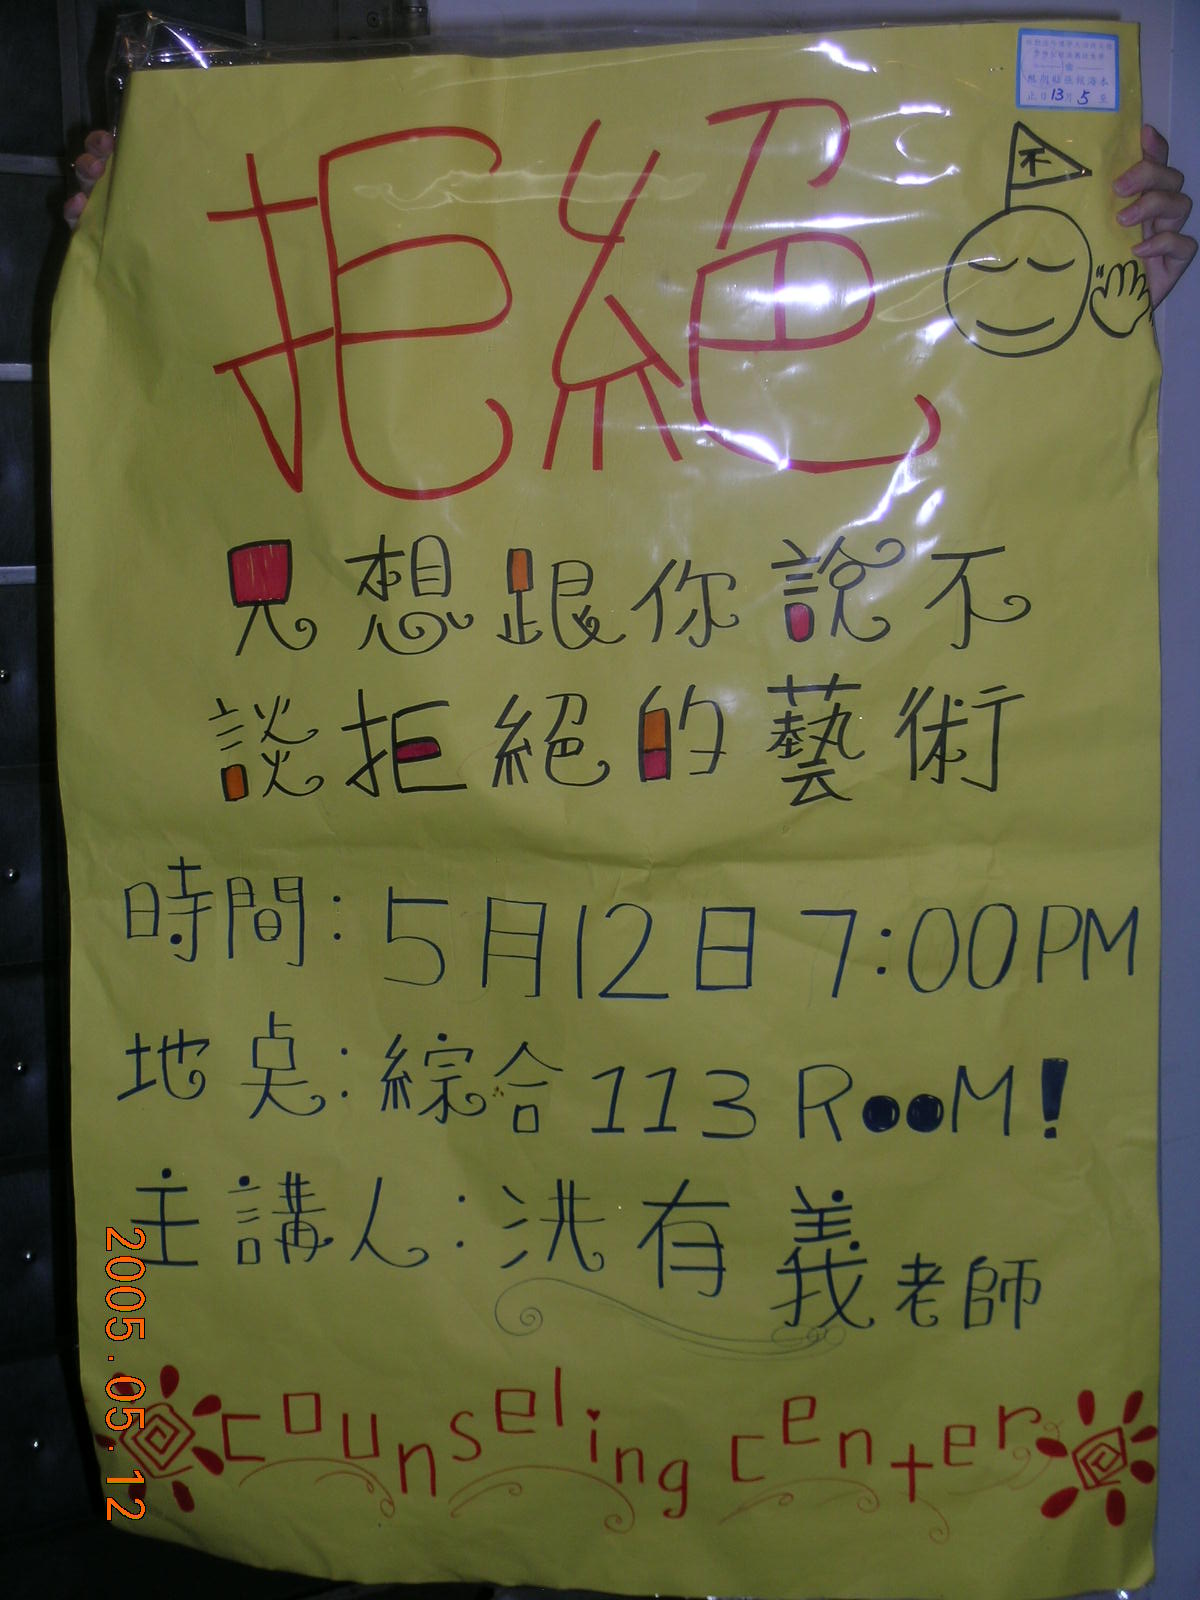 不
拒絕
只想跟你說不
談拒絕的藝術
時間：5月12日 7:00PM
地点：綜合113 RooM!
主講人：洪有義老師
counseling center
2005.05.12